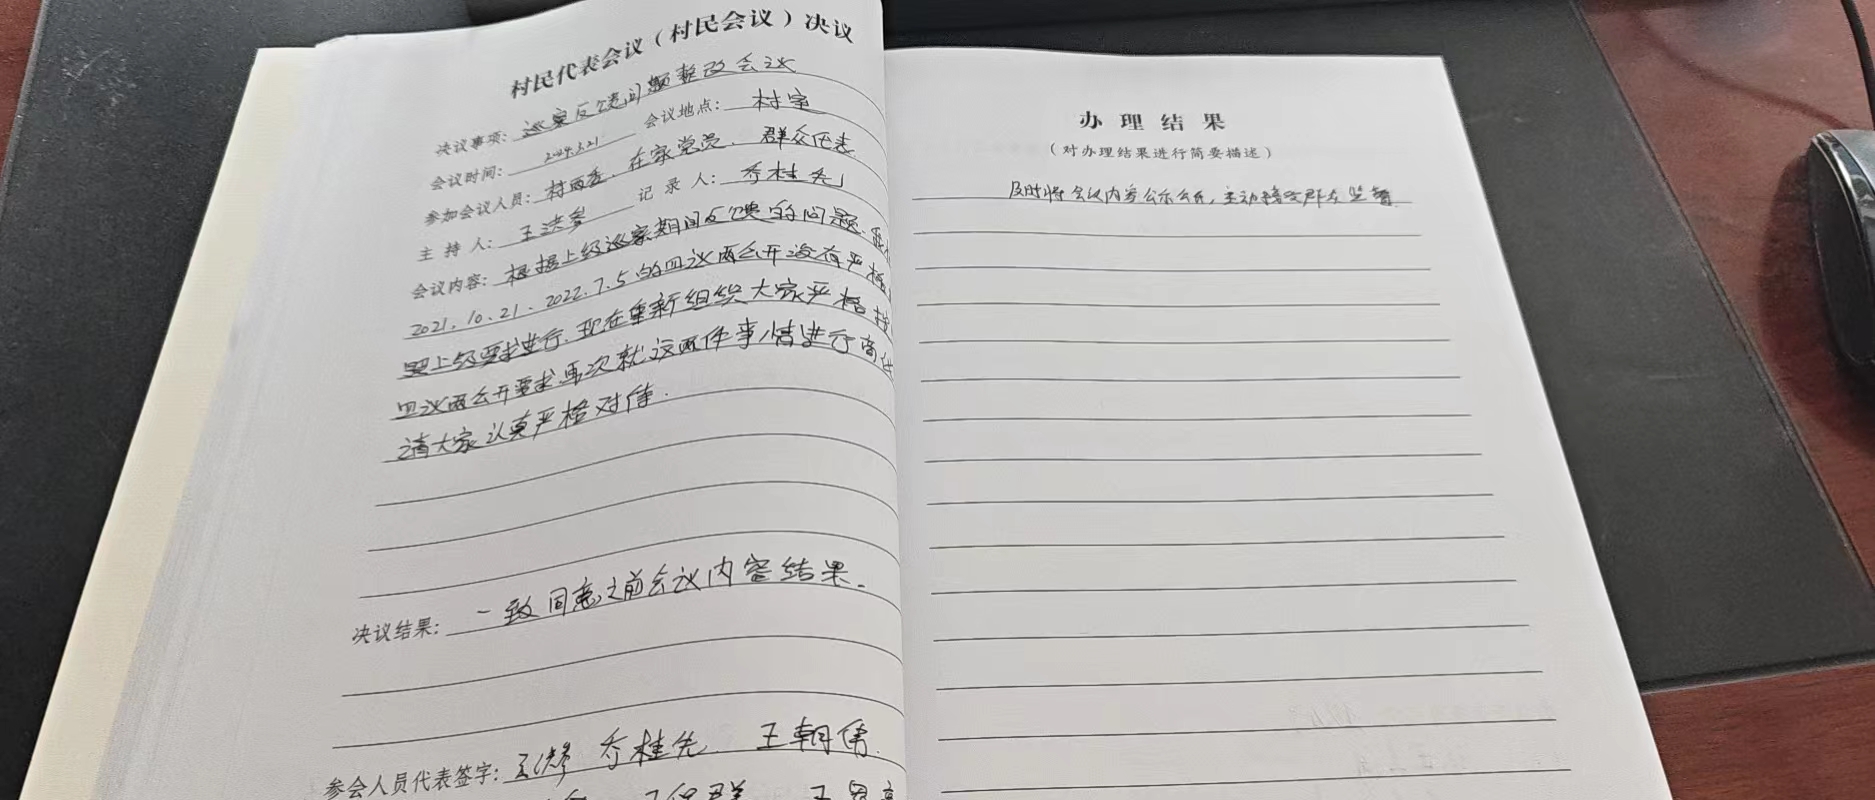 村民代表会议（村民会议）决议
决议事项：巡察反馈问题整改会议
会议时间：2024.3.21 会议地点：村室
参加会议人员：村两委、在家党员、群众代表
主持人：王洪参 记录人：乔桂先
会议内容：根据上级巡察期间反馈的问题，
2021.10.21、2022.7.5的四议两公开没有严格
照上级要求进行，现在重新组织大家严格按
四议两公开要求再次就这两件事情进行商议
请大家认真严格对待．
决议结果：一致同意之前会议内容结果．
参会人员代表签字： 乔桂先 王朝倩
办理结果
（对办理结果进行简要描述）
及时将会议内容公示公告，主动接受群众监督．